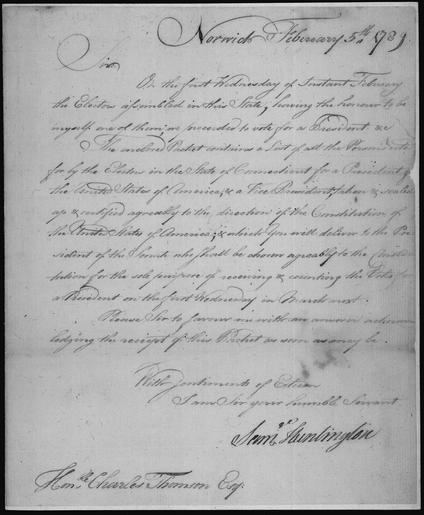 Norwich February 5th. 1789
Sir
On the first Wednesday of Instant February
the Electors assembled in this State, having the honour to be
myself one of them; we proceeded to vote for a President &c
The enclosed Packet contains a List of all the Persons voted
for by the Electors in the State of Connecticut for a President of
the United States of America, & a Vice President, taken & sealed
up & certified agreably to the direction of the Constitution of
the United States of America, & which you will deliver to the Pre
sident of the Senate who shall be chosen agreably to the Consti
tution for the sole purpose of receiving & counting the Votes for
a President on the first Wednesday in March next.
Please Sir to favour me with an answer acknow
ledging the receipt of this Packet as soon as may be.
With Sentiments of Esteem
I am Sir your humble Servant
Saml. Huntington
Honble. Charles Thomson Esqr.